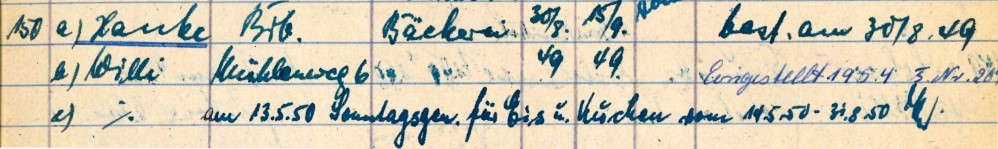 150 a) Hanke Brb. Bäckerei 30/8. 15/9. best. am 30/8.49
b) Willi Mühlenweg 6 49 49. Eingestellt 19.5.4 Z. Nr. 20
c) ·/. am 13.5.50 Sonntagsgen. für Eis u. Kuchen vom 14.5.50 - 31.8.50